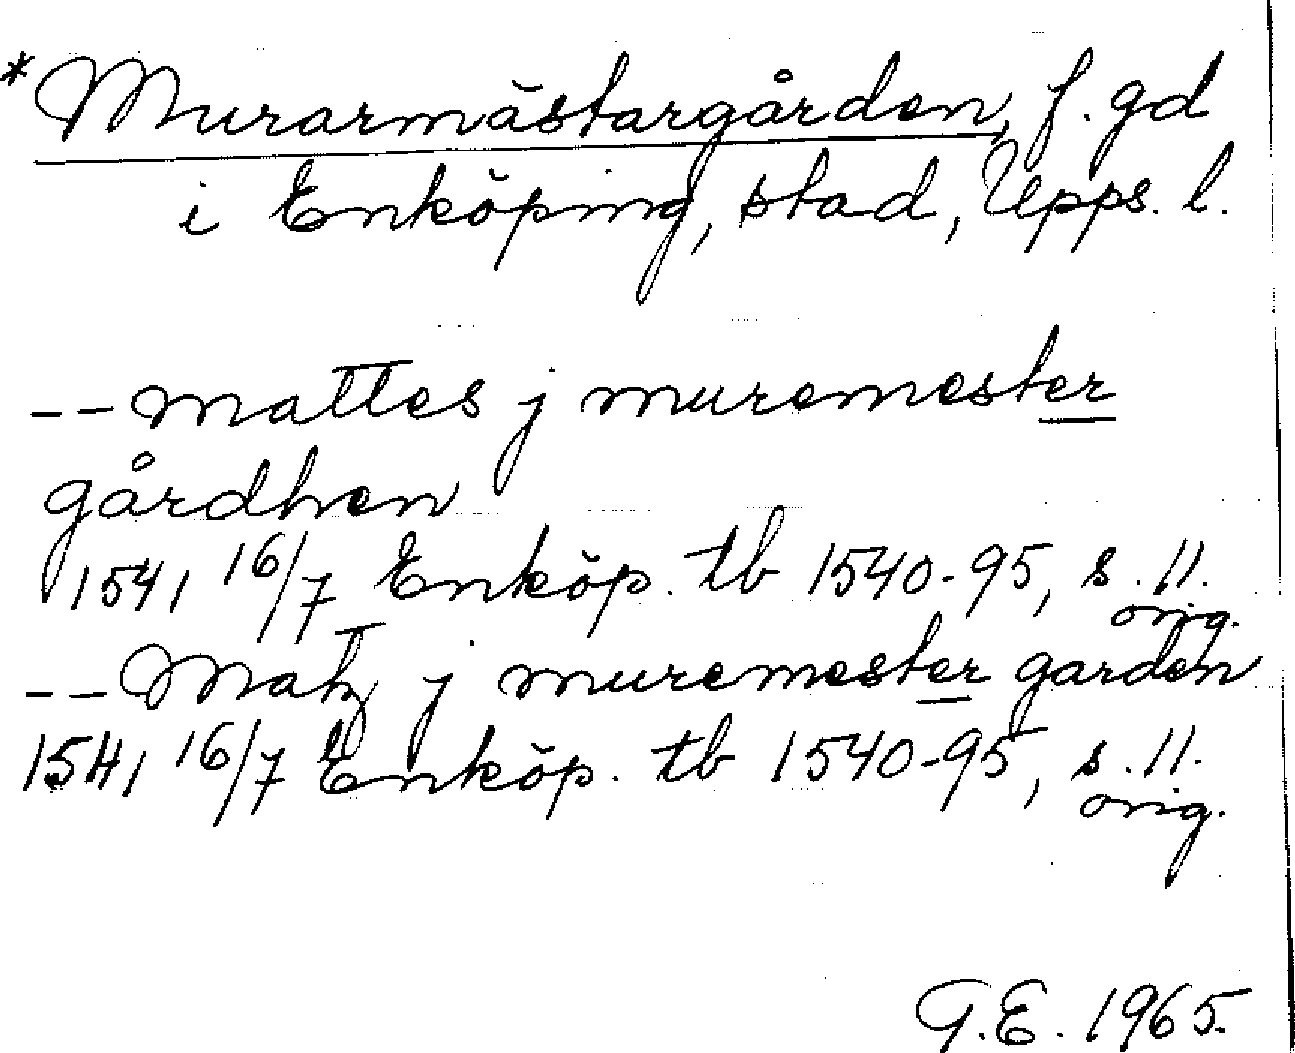 *Murarmästargården, f. gd
i Enköping, stad, Upps. l.
-- mattes j muremester
gårdhen
1541 16/7 Enköp. tb 1540-95, s. 11.
orig.
-- Matz j muremester garden
1541 16/7 Enköp. tb 1540-95, s. 11.
orig.
G.E. 1965.